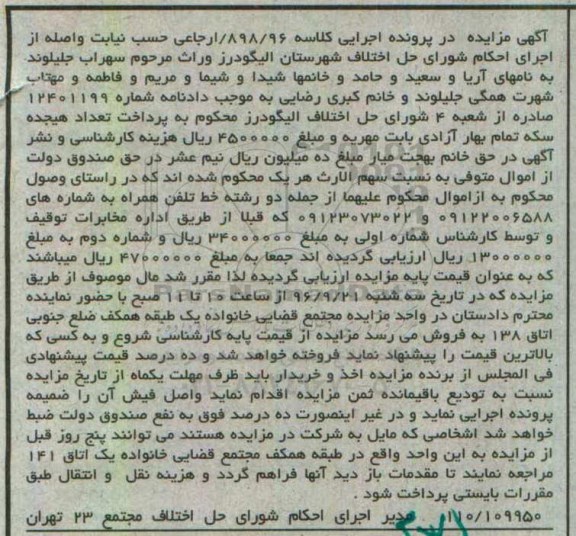 آگهی مزایده در پرونده اجرایی کلاسه ۸۹۸/۹۶/ارجاعی حسب نیابت واصله از
اجرای احکام شورای حل اختلاف شهرستان الیگودرز وراث مرحوم سهراب جلیلوند
به نامهای آریا و سعید و حامد و خانمها شیدا و شیما و مریم و فاطمه و مهتاب
شهرت همگی جلیلوند و خانم کبری رضایی به موجب دادنامه شماره ۱۲۴۰۱۱۹۹
صادره از شعبه ۴ شورای حل اختلاف الیگودرز محکوم به پرداخت تعداد هیجده
سکه تمام بهار آزادی بابت مهریه و مبلغ ۴۵۰۰۰۰۰ ریال هزینه کارشناسی و نشر
آگهی در حق خانم بهجت میار مبلغ ده میلیون ریال نیم عشر در حق صندوق دولت
از اموال متوفی به نسبت سهم الارث هر یک محکوم شده اند که در راستای وصول
محکوم به ازاموال محکوم علیهما از جمله دو رشته خط تلفن همراه به شماره های
۰۹۱۲۲۰۰۶۵۸۸ و ۰۹۱۲۳۰۷۳۰۲۲ که قبلا از طریق اداره مخابرات توقیف
و توسط کارشناس شماره اولی به مبلغ ۳۴۰۰۰۰۰۰ ریال و شماره دوم به مبلغ
۱۳۰۰۰۰۰۰ ریال ارزیابی گردیده اند جمعا به مبلغ ۴۷۰۰۰۰۰۰ ریال میباشند
که به عنوان قیمت پایه مزایده ارزیابی گردیده لذا مقرر شد مال موصوف از طریق
مزایده که در تاریخ سه شنبه ۹۶/۹/۲۱ از ساعت ۱۰ تا ۱۱ صبح با حضور نماینده
محترم دادستان در واحد مزایده مجتمع قضایی خانواده یک طبقه همکف ضلع جنوبی
اتاق ۱۳۸ به فروش می رسد مزایده از قیمت پایه کارشناسی شروع و به کسی که
بالاترین قیمت را پیشنهاد نماید فروخته خواهد شد و ده درصد قیمت پیشنهادی
فی المجلس از برنده مزایده اخذ و خریدار باید ظرف مهلت یکماه از تاریخ مزایده
نسبت به تودیع باقیمانده ثمن مزایده اقدام نماید واصل فیش آن را ضمیمه
پرونده اجرایی نماید و در غیر اینصورت ده درصد فوق به نفع صندوق دولت ضبط
خواهد شد اشخاصی که مایل به شرکت در مزایده هستند می توانند پنج روز قبل
از مزایده به این واحد واقع در طبقه همکف مجتمع قضایی خانواده یک اتاق ۱۴۱
مراجعه نمایند تا مقدمات باز دید آنها فراهم گردد و هزینه نقل و انتقال طبق
مقررات بایستی پرداخت شود .
۱۱۰/۱۰۹۹۵۰ مدیر اجرای احکام شورای حل اختلاف مجتمع ۲۳ تهران